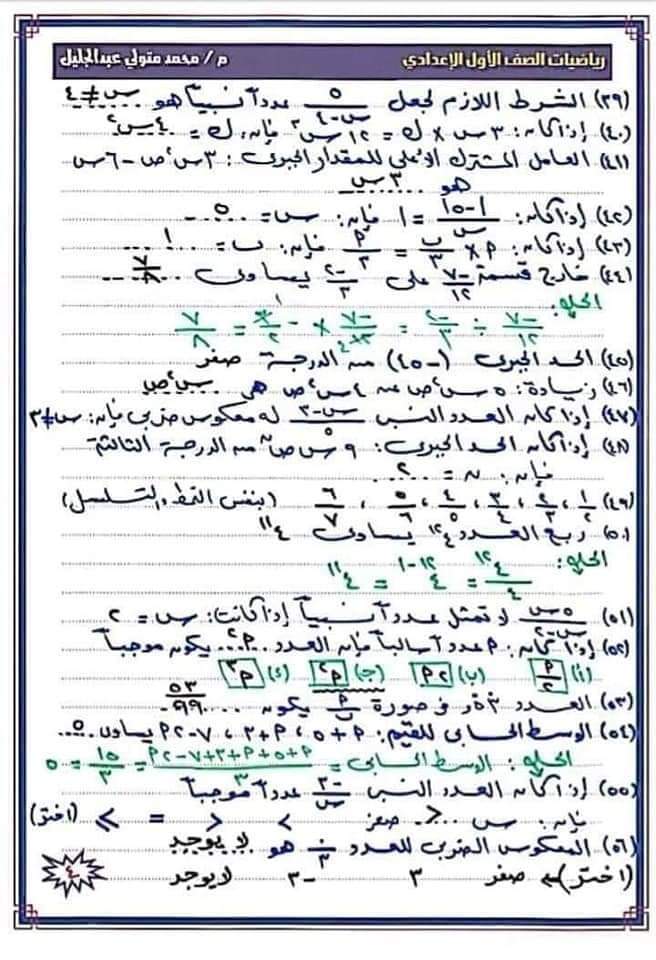 رياضيات الصف الأول الإعدادي م / محمد متولي عبدالجليل
(٣٩) الشرط اللازم لجعل ٥/(س-٤) عدداً نسبياً هو س ≠ ٤
(٤٠) إذا كان: ٣س × ك = ١٢س٣ فإن: ك = ٤س٢
(٤١) العامل المشترك الأعلى للمقدار الجبرى: ٣س٢ص - ٦س
هو ٣س
(٤٢) إذا كان: |-١٥|/س = ١ فإن: س =
(٤٣) إذا كان: P × ب/٣ = P/٣ فإن: ب = ١
(٤٤) خارج قسمة -٧/١٢ على -٢/٣ يساوى ٧/٨
الحل:
-٧/١٢ ÷ -٢/٣ = -٧/١٢ × -٣/٢ = ٧/٨
(٤٥) الحد الجبرى (-٤٥) من الدرجة صفر
(٤٦) زيادة: ٥س٢ص عن ٤س٢ص هى س٢ص
(٤٧) إذا كان العدد النسبى (س-٣)/٥ له معكوس ضربى فإن: س ≠ ٣
(٤٨) إذا كان الحد الجبرى: ٩س ص^ن من الدرجة الثالثة
فإن: ن = ٢
(٤٩) ١/٢ ، ٢/٣ ، ٣/٤ ، ٤/٥ ، ٥/٦ ، ٦/٧ (بنفس النمط والتسلسل)
(٥٠) ربع العدد ٤^١٢ يساوى ٤^١١
الحل: ٤^١٢/٤ = ٤^(١٢-١) = ٤^١١
(٥١) ٥س/(س-٢) لا تمثل عدداً نسبياً إذا كانت: س = ٢
(٥٢) إذا كان: P عدداً سالباً فإن العدد P٢ يكون موجباً
(أ) P/٢ (ب) ٢P (ج) P٢ (د) P٣
(٥٣) العدد ٥٣,٠ فى صورة P/ب يكون ٥٣/٩٩
(٥٤) الوسط الحسابى للقيم: P+٥ ، P+٣ ، ٧-٢P يساوى ٥
الحل: الوسط الحسابى = (P+٥+P+٣+٧-٢P)/٣ = ١٥/٣ = ٥
(٥٥) إذا كان العدد النسبى -٣/س عدداً موجباً
فإن: س < صفر > < = ≥ (اختر)
(٥٦) المعكوس الضربى للعدد صفر/٣ هو لا يوجد
(اختر) صفر ٣ -٣ لايوجد
٤